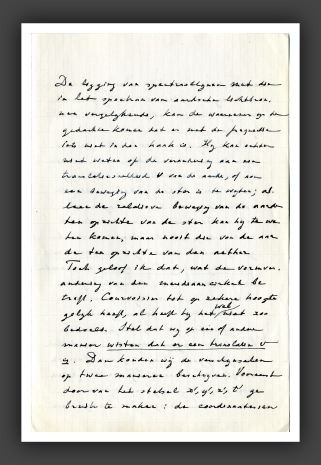 De ligging van spectraallijnen met die
in het spectrum van aardsche lichtbron-
nen vergelijkende, kan de waarnemer op de
gedachte komen dat er met de frequentie
iets niet in den haak is. Hij kan echter
niet weten of de verandering aan een
translatiesnelheid v van de aarde, of aan
een beweging van de ster is te wijten; al-
leen de relatieve beweging van de aarde
ten opzichte van de ster kan hij te we-
ten komen, maar nooit die van de aar-
de ten opzichte van den aether.
Toch geloof ik dat, wat de
van den meridiaancirkel be-
treft, Courvoisier tot op zekere hoogte
gelijk heeft, al heeft hij het wel niet zoo
bedoeld. Stel dat wij op een of andere
manier wisten dat er een translatie v
is. Dan konden wij de verschijnselen
op twee manieren beschrijven. Vooreerst
door van het stelsel x', y', z', t' ge-
bruik te maken; de coordinatassen